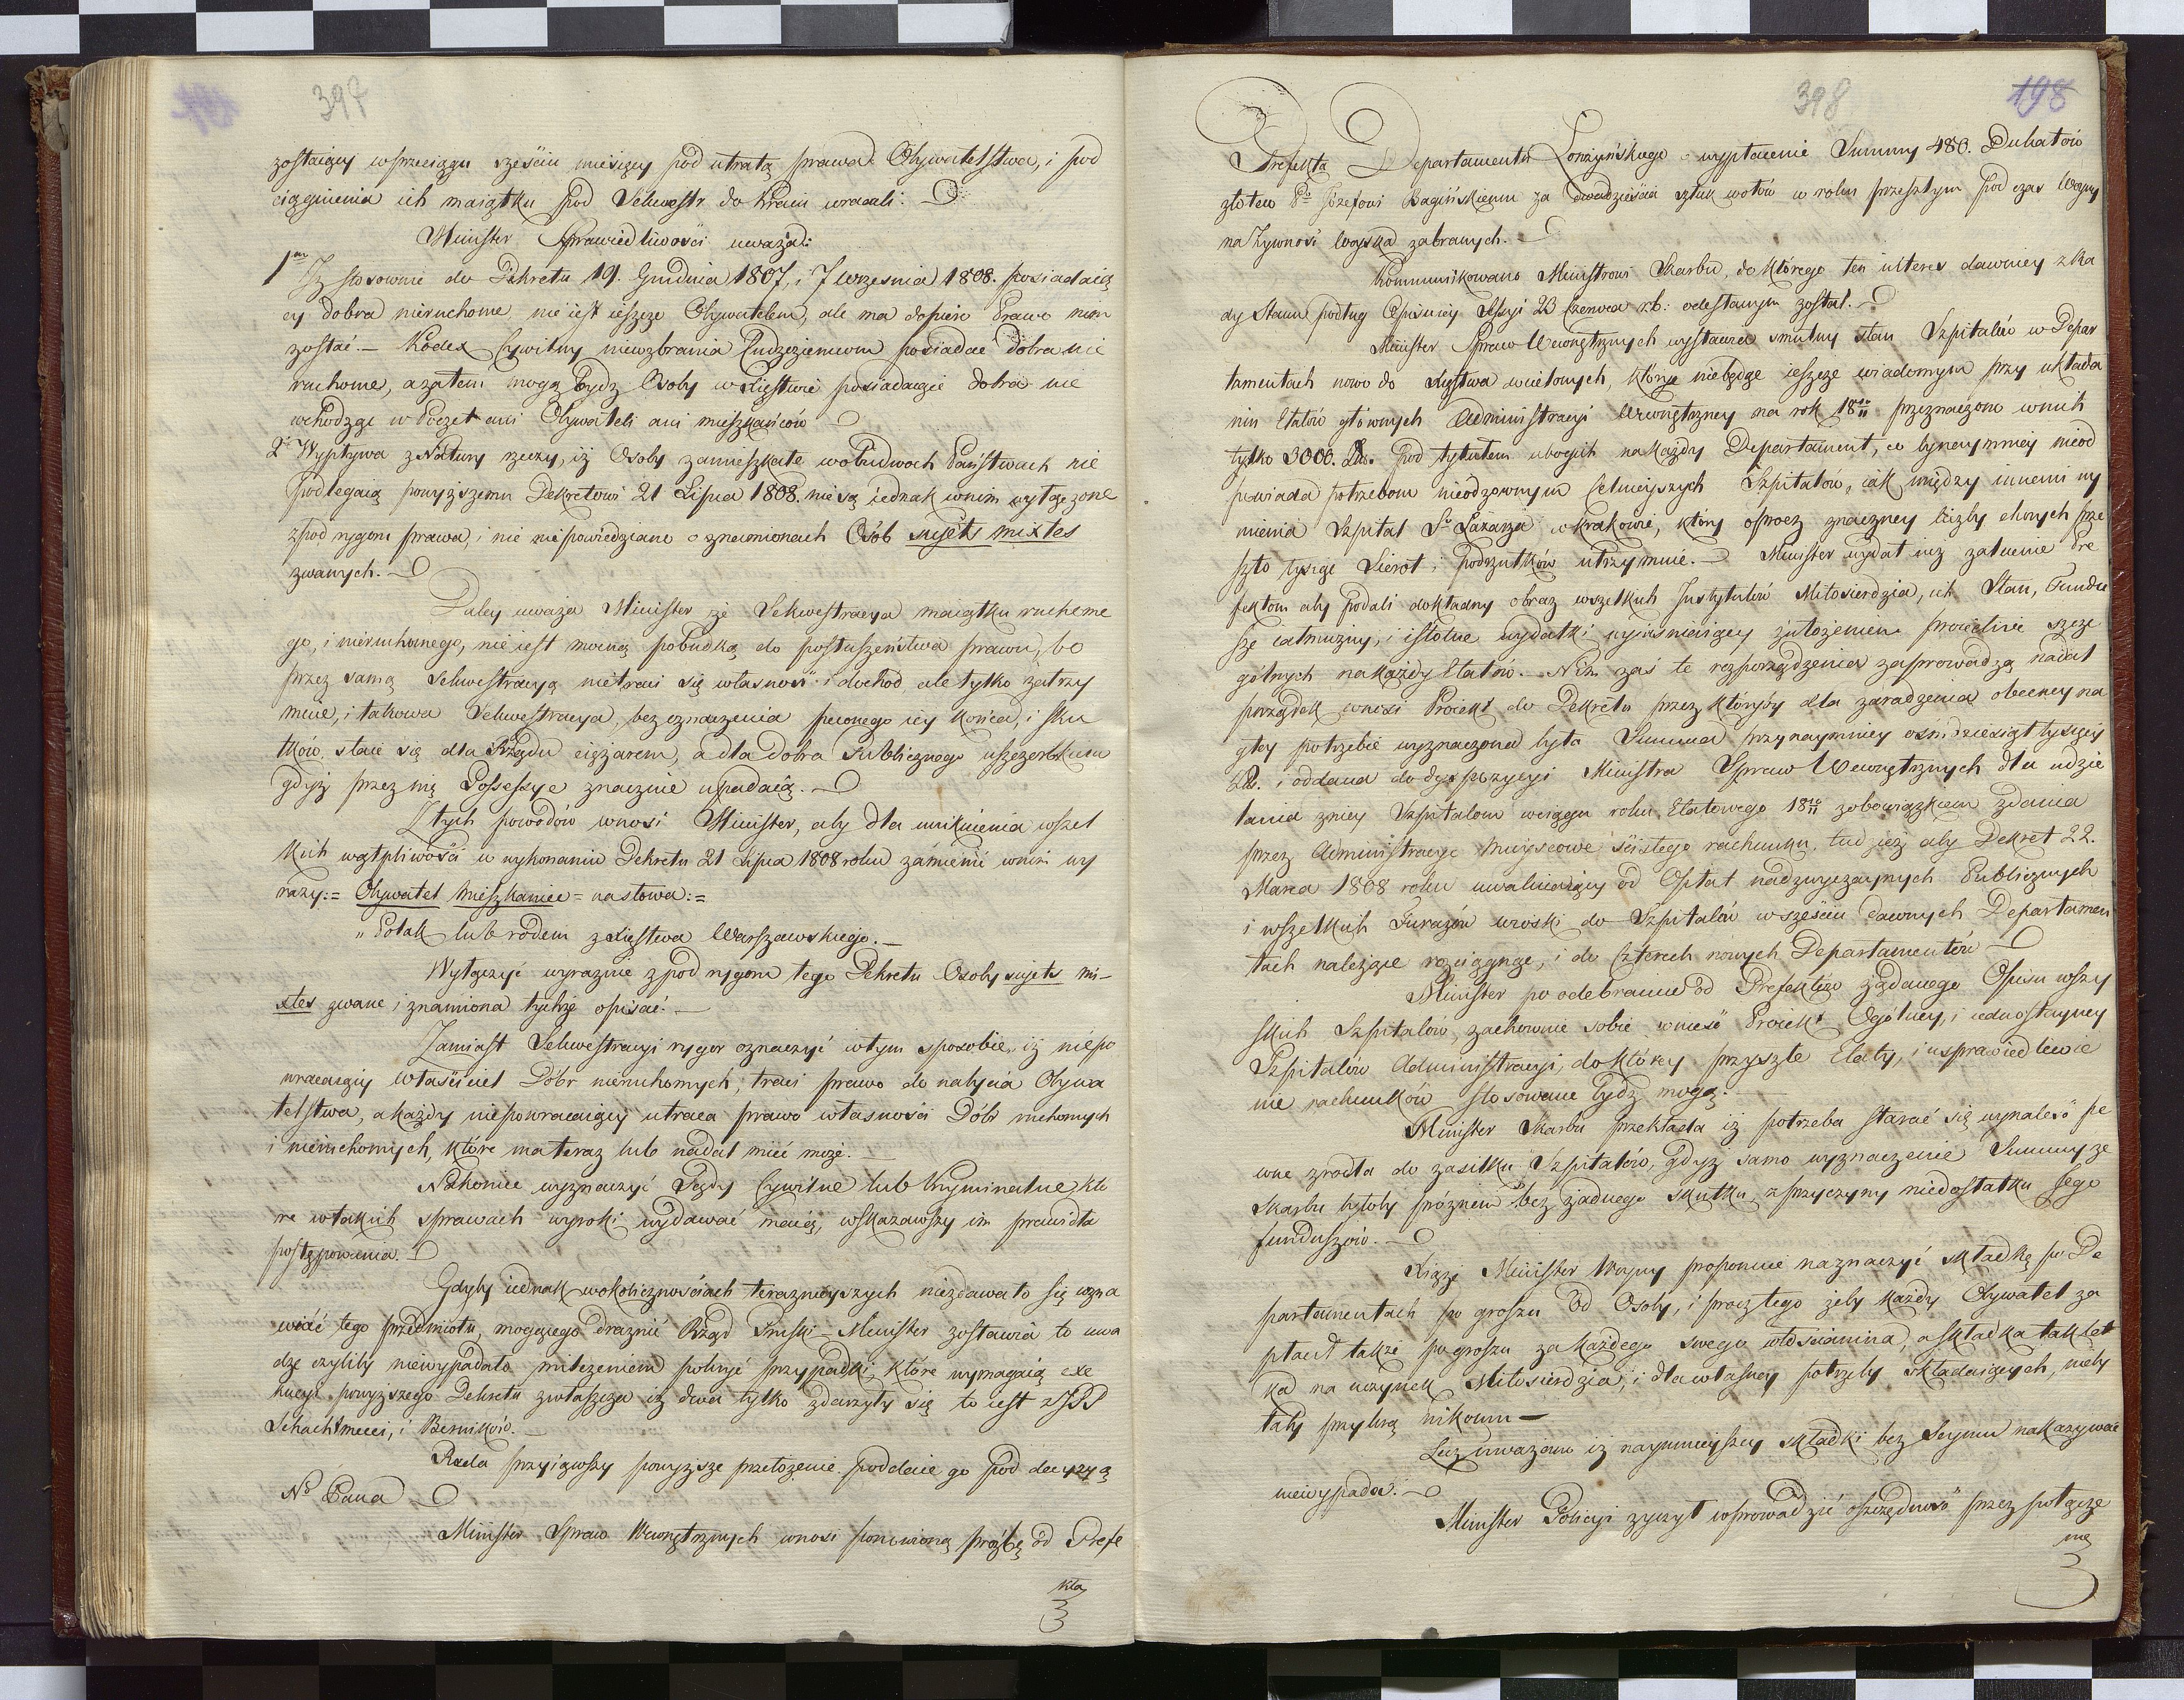 397
zostaiący w przeciągu sześciu miesięcy pod utratą prawa Obywatelstwa, i pod
ciągnienia ich maiątku pod Sekwestr do Kraiu wracali.
Minister Sprawiedliwości uważał:
1mo Iż stosownie do Dekretu 19. Grudnia 1807, i 7 Wrzesnia 1808. posiadaią
cy dobra nieruchome nie iest ieszcze Obywatelem, ale ma dopiero Prawo nim
zostać. — Kodex Cywilny niewzbrania Cudzoziemcom posiadać dobra nie
ruchome, a zatem mogą bydz Osoby w Xięstwie posiadaiące dobra nie
wchodzące w Poczet ani Obywateli ani mieszkańców
2o Wypływa z Natury rzeczy, iż Osoby zamieszkałe w obudwoch Państwach nie
podlegaią powyższemu Dekretowi 21 Lipca 1808. nie są iednak w nim wyłączone
z pod rygoru prawa, i nic nie powiedziano o znamionach Osób sujets mixtes
zwanych.
Daley uważa Minister że Sekwestracya maiątku ruchome
go, i nieruchomego, nie iest mocną pobudką do posłuszeństwa prawu, bo
przez samą Sekwestracyą nietraci się własność i dochod ale tylko zatrzy
muie, i takowa Sekwestracya, bez oznaczenia pewnego iey końca, i sku
tków, staie się dla Rządu ciężarem, a dla dobra Publicznego uszczerbkiem
gdyż przez nią Possessye znacznie upadaią.
Z tych powodów wnosi Minister, aby dla uniknienia wszel
kich wątpliwości w wykonaniu Dekretu 21 Lipca 1808 roku zamienić w nim wy
razy: = Obywatel Mieszkaniec = na słowa: =
„ Polak lub rodem z Xięstwa Warszawskiego. —
Wyłączyć wyraznie z pod rygoru tego Dekretu Osoby sujets mi-
xtes zwane i znamiona tychże opisać. —
Zamiast Sekwestracyi rygor oznaczyć w tym sposobie, iż niepo
wracaiący właściciel Dóbr nieruchomych, traci prawo do nabycia Obywa
telstwa, a każdy niepowracaiący utraca prawo własności Dóbr ruchomych
i nieruchomych, które ma teraz lub nadal mieć może. —
Nakoniec wyznaczyć Sądy Cywilne lub Kryminalne któ
re w takich sprawach wyroki wydawać maią, wskazawszy im prawidła
postępowania.
Gdyby iednak w okolicznościach teraznieyszych niezdawało się wzna
wiać tego przedmiotu, mogącego draznić Rząd Pruski — Minister zostawia to uwa
dze czyliby niewypadało milczeniem pokryć przypadki, które wymagaią exe
kucyi powyższego Dekretu zwłaszcza iż dwa tylko zdarzyły się to iest z JPP
Schachtmeier, i Berników. —
Rada przyiąwszy powyższe przełożenie poddaie go pod decyzyą
No Pana
Minister Spraw Wewnętrznych wnosi ponowioną prożbę od Prefe
kta
398
198
Prefekta Departamentu Łomżyńskiego o wypłacenie Summy 480. Dukatów
złotem Po Józefowi Bagińskiemu za dwadzieścia sztuk wołów w roku przeszłym pod czas Woyny
na żywność woyska zabranych.
Kommunikowano Ministrowi Skarbu, do którego ten interes dawniey z Ra
dy Stanu podług Expedycyi Sessyi 23 Czerwca r.b. odesłanym został.
Minister Spraw Wewnętrznych wystawia smutny stan Szpitalów w Depar
tamentach nowo do Xięstwa wcielonych, które niebędąc ieszcze wiadomym przy układa
niu Etatów głównych Administracyi Wewnętrzney na rok 1810/11 przeznaczono w nich
tylko 3000. Zł. pod tytułem ubogich na każdy Departament, co bynaymniey nieod
powiada potrzebom nieodzownym celnieyszych Szpitalów, iak między innemi wy
mienia Szpital So Łazarza w Krakowie, który oprocz znaczney liczby chorych prze
szło tysiąc Sierot i podrzutków utrzymuie. Minister wydał iuż zalecenie Pre
fektom aby podali dokładny obraz wszelkich Instytutów Miłosierdzia, ich Stan, Fundu
sze iałmużny, i istotne wydatki wyiaśniaiący z ułożeniem prowadnie szcze
gólnych na każdy Etatów. — Nim zaś te rozporządzenia zaprowadzą nadal
porządek wnosi Proiekt do Dekretu przez któryby dla zaradzenia obecney na
głey potrzebie wyznaczona była Summa przynaymniey ośmdziesiąt tysięcy
Zł. i oddana do dyspozycyi Ministra Spraw Wewnętrznych dla udzie
lania z niey Szpitalom w ciągu roku Etatowego 1810/11 z obowiązkiem zdania
przez Administracye mieyscowe ścisłego rachunku, tudzież aby Dekret 22.
Marca 1808 roku uwalniaiący od Opłat nadzwyczaynych Publicznych
i wszelkich Furażów wioski do Szpitalów w sześciu dawnych Departamen
tach należące rozciągnąć, i do Czterech nowych Departamentów
Minister po odebraniu od Prefektów żądanego Opisu wszy
stkich Szpitalów, zachowuie sobie wnieść Proiekt Ogólney, i iednostayney
Szpitalów Administracyi, do którey przyszłe Etaty, i usprawiedliwie
nie rachunków stosowane bydz mogą. —
Minister Skarbu przekłada iż potrzeba starać się wynaleść pe
wne zrodła do zasiłku Szpitalów, gdyż samo wyznaczenie Summy ze
Skarbu byłoby próżnem bez żadnego skutku, z przyczyny niedostatku Jego
funduszów.
Xiąże Minister Woyny proponuie naznaczyć składkę po De
partamentach po groszu od Osoby, i procz tego żeby każdy Obywatel za
płacił także po groszu za każdego swego włościanina, a składka tak let
ka na uczynek Miłosierdzia, i dla własney potrzeby składaiących, nieby
łaby przykrą nikomu —
Lecz uważono iż naymnieyszey składki bez Seymu nakazywać
niewypada.
Minister Policyi życzył wprowadzić oszczędność przez połącze
nie